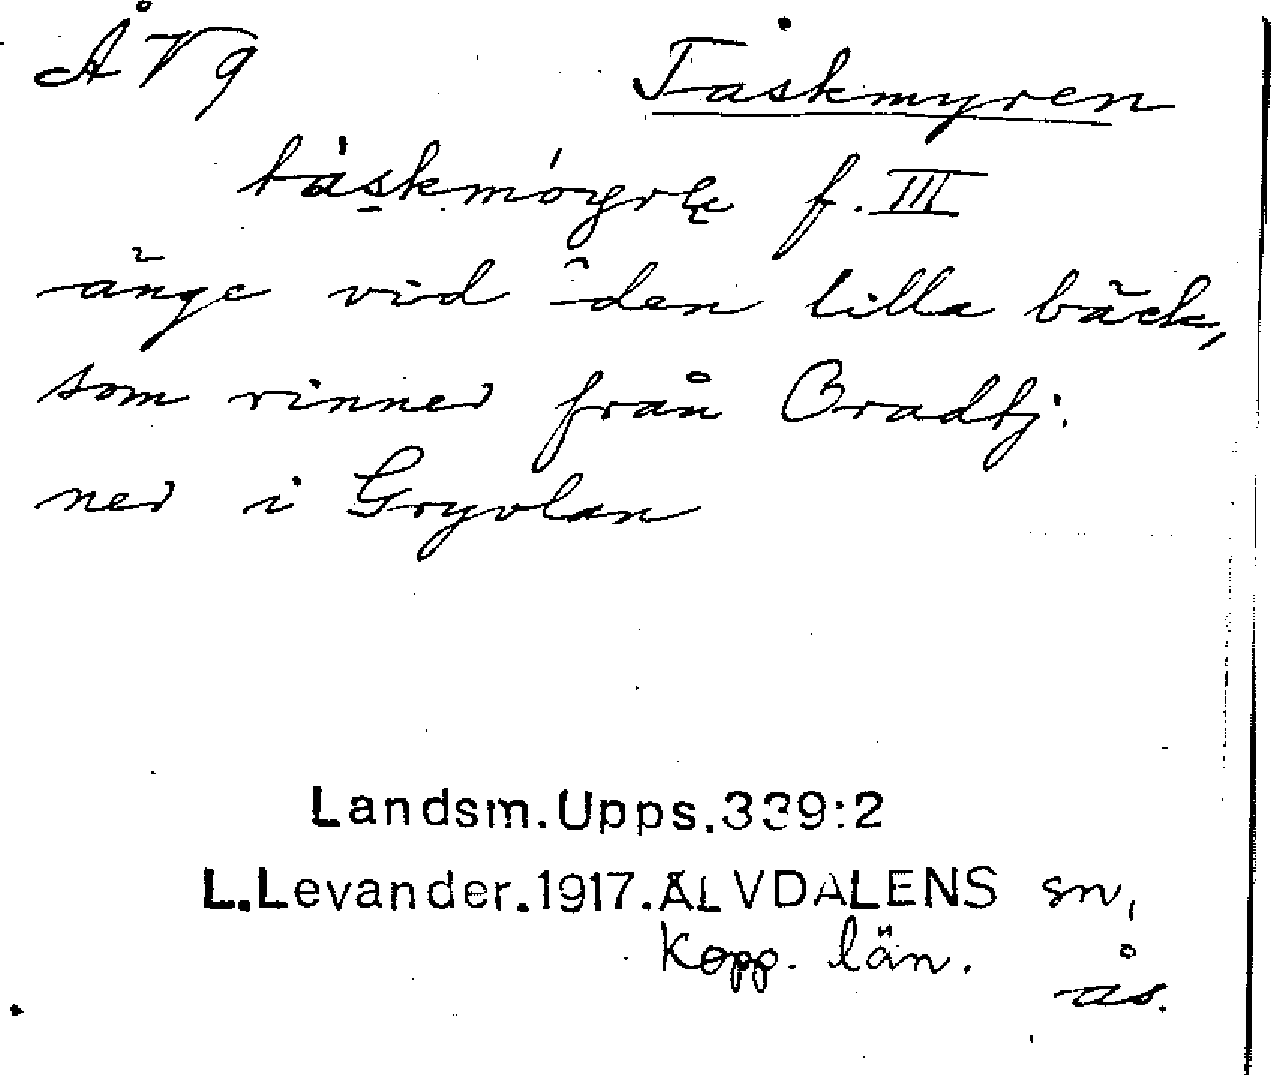 ÅV9 Tåskmyren
tåskmöyrę f. III
änge vid den lilla bäck,
som rinner från Oradtj.
ner i Gryvlan
Landsm.Upps.339:2
L.Levander.1917.ÄLVDALENS sn,
Kopp. län.
ås.